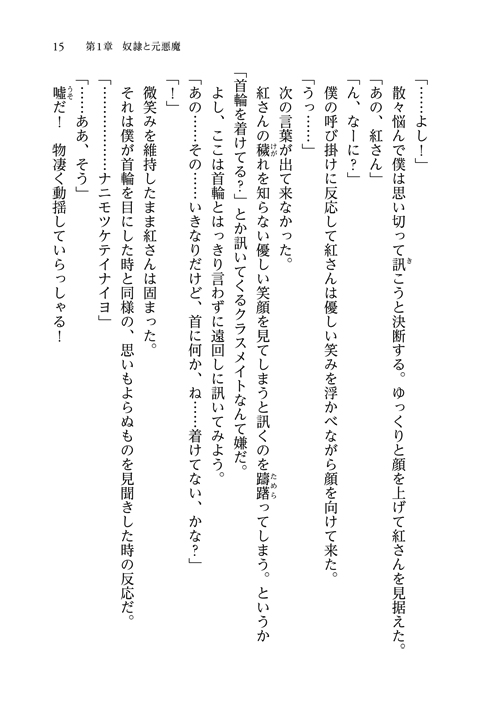 15 第1章 奴隷と元悪魔
「……よし！」
散々悩んで僕は思い切って訊こうと決断する。ゆっくりと顔を上げて紅さんを見据えた。
「あの、紅さん」
「ん、なーに？」
僕の呼び掛けに反応して紅さんは優しい笑みを浮かべながら顔を向けて来た。
「うっ……」
次の言葉が出て来なかった。
紅さんの穢れを知らない優しい笑顔を見てしまうと訊くのを躊躇ってしまう。というか
「首輪を着けてる？」とか訊いてくるクラスメイトなんて嫌だ。
よし、ここは首輪とはっきり言わずに遠回しに訊いてみよう。
「あの……その……いきなりだけど、首に何か、ね……着けてない、かな？」
「！」
微笑みを維持したまま紅さんは固まった。
それは僕が首輪を目にした時と同様の、思いもよらぬものを見聞きした時の反応だ。
「………………ナニモツケテイナイヨ」
「……ああ、そう」
嘘だ！　物凄く動揺していらっしゃる！